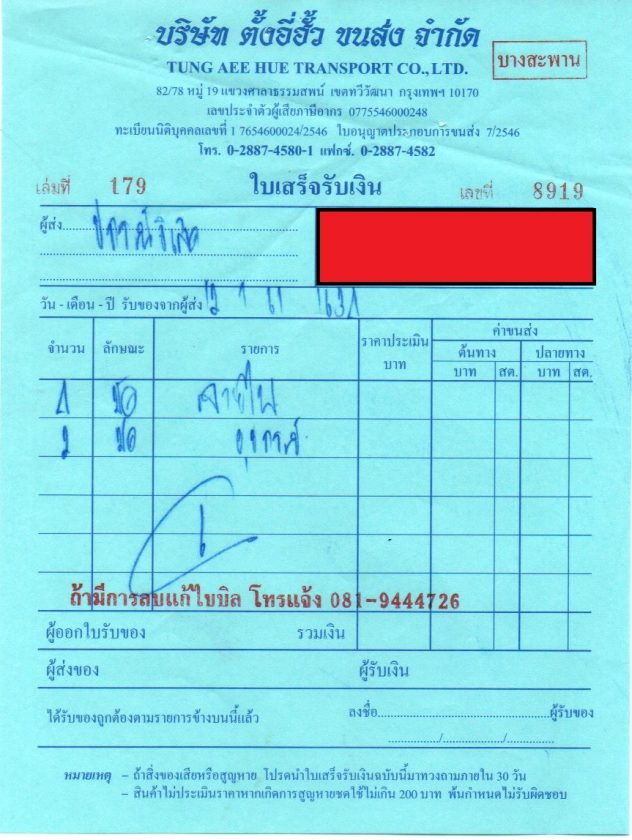 บริษัท ตั้งอี่ฮั้ว ขนส่ง จำกัด
บางสะพาน
TUNG AEE HUE TRANSPORT CO., LTD.
82/78 หมู่ 19 แขวงศาลาธรรมสพน์ เขตทวีวัฒนา กรุงเทพฯ 10170
เลขประจำตัวผู้เสียภาษีอากร 0775546000248
ทะเบียนนิติบุคคลเลขที่ 1 7654600024/2546 ใบอนุญาตประกอบการขนส่ง 7/2546
โทร. 0-2887-4580-1 แฟกซ์. 0-2887-4582
เล่มที่ 179 ใบเสร็จรับเงิน เลขที่ 8919
ผู้ส่ง
วัน - เดือน - ปี รับของจากผู้ส่ง
จำนวน ลักษณะ รายการ ราคาประเมิน บาท ค่าขนส่ง
ต้นทาง ปลายทาง
บาท สต. บาท สต.
1 มัด สายไฟ
2 มัด อุปกรณ์
ถ้ามีการลบแก้ไขบิล โทรแจ้ง 081-9444726
ผู้ออกใบรับของ รวมเงิน
ผู้ส่งของ ผู้รับเงิน
ได้รับของถูกต้องตามรายการข้างบนนี้แล้ว ลงชื่อ ผู้รับของ
หมายเหตุ – ถ้าสิ่งของเสียหรือสูญหาย โปรดนำใบเสร็จรับเงินฉบับนี้มาทวงถามภายใน 30 วัน
– สินค้าไม่ประเมินราคาหากเกิดการสูญหายชดใช้ไม่เกิน 200 บาท พ้นกำหนดไม่รับผิดชอบ